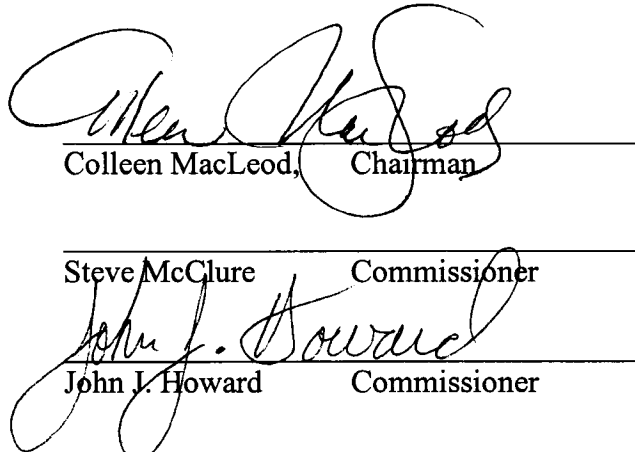 Colleen MacLeod
Colleen MacLeod, Chairman
Steve McClure Commissioner
John J. Howard
John J. Howard Commissioner